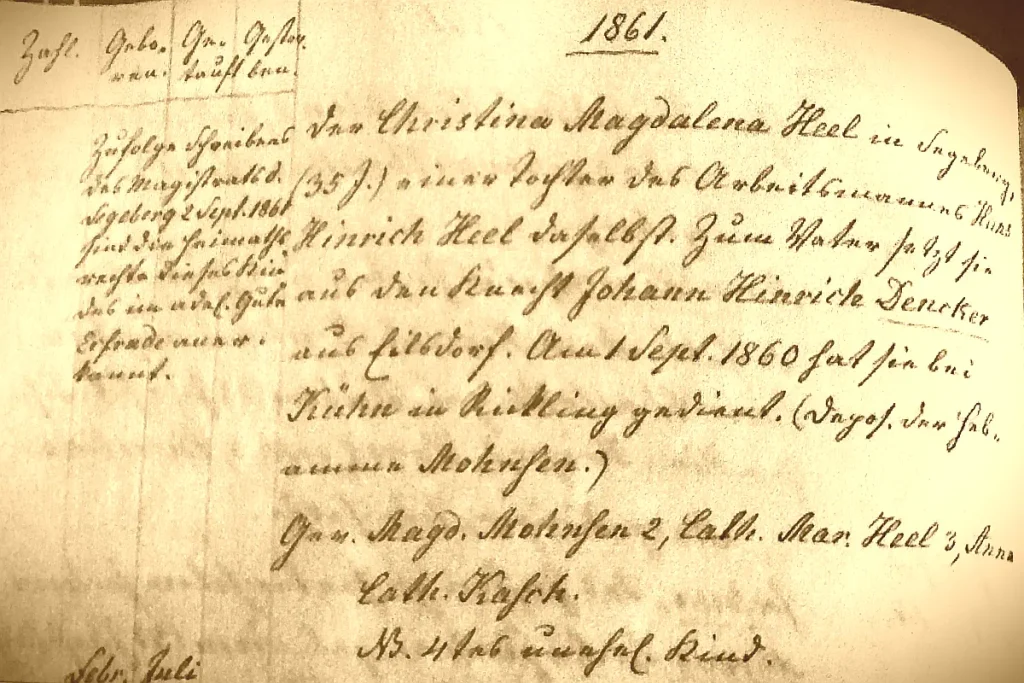 1861.
Zahl. Gebo- Ge- Gestor-
ren. tauft ben.
Zufolge Schreibens
des Magistrats d.
Segeberg 2 Sept. 1861
sind die Heimaths
rechte dieses Kin
des im adel. Gute
Erfrade aner-
kannt.
der Christina Magdalena Heel in Segeberg,
(35 J.) einer Tochter des Arbeitsmannes Hans
Hinrich Heel daselbst. Zum Vater setzt sie
aus den Knecht Johann Hinrich Dencker
aus Eilsdorf. Am 1 Sept. 1860 hat sie bei
Kühn in Rickling gedient. (Depos. der Heb-
amme Mohnsen.)
Gev. Magd. Mohnsen 2, Cath. Mar. Heel 3, Anna
Cath. Kasch.
NB. 4tes unehel. Kind.
Febr. Juli